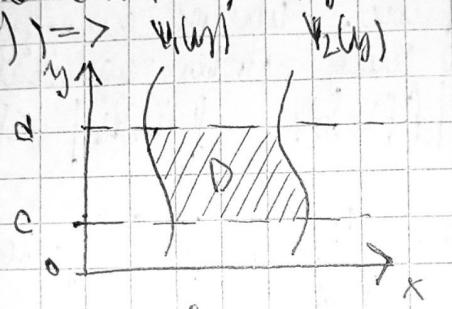 ) ) => ψ₁(y) ψ₂(y)
y
d
D
c
0
x